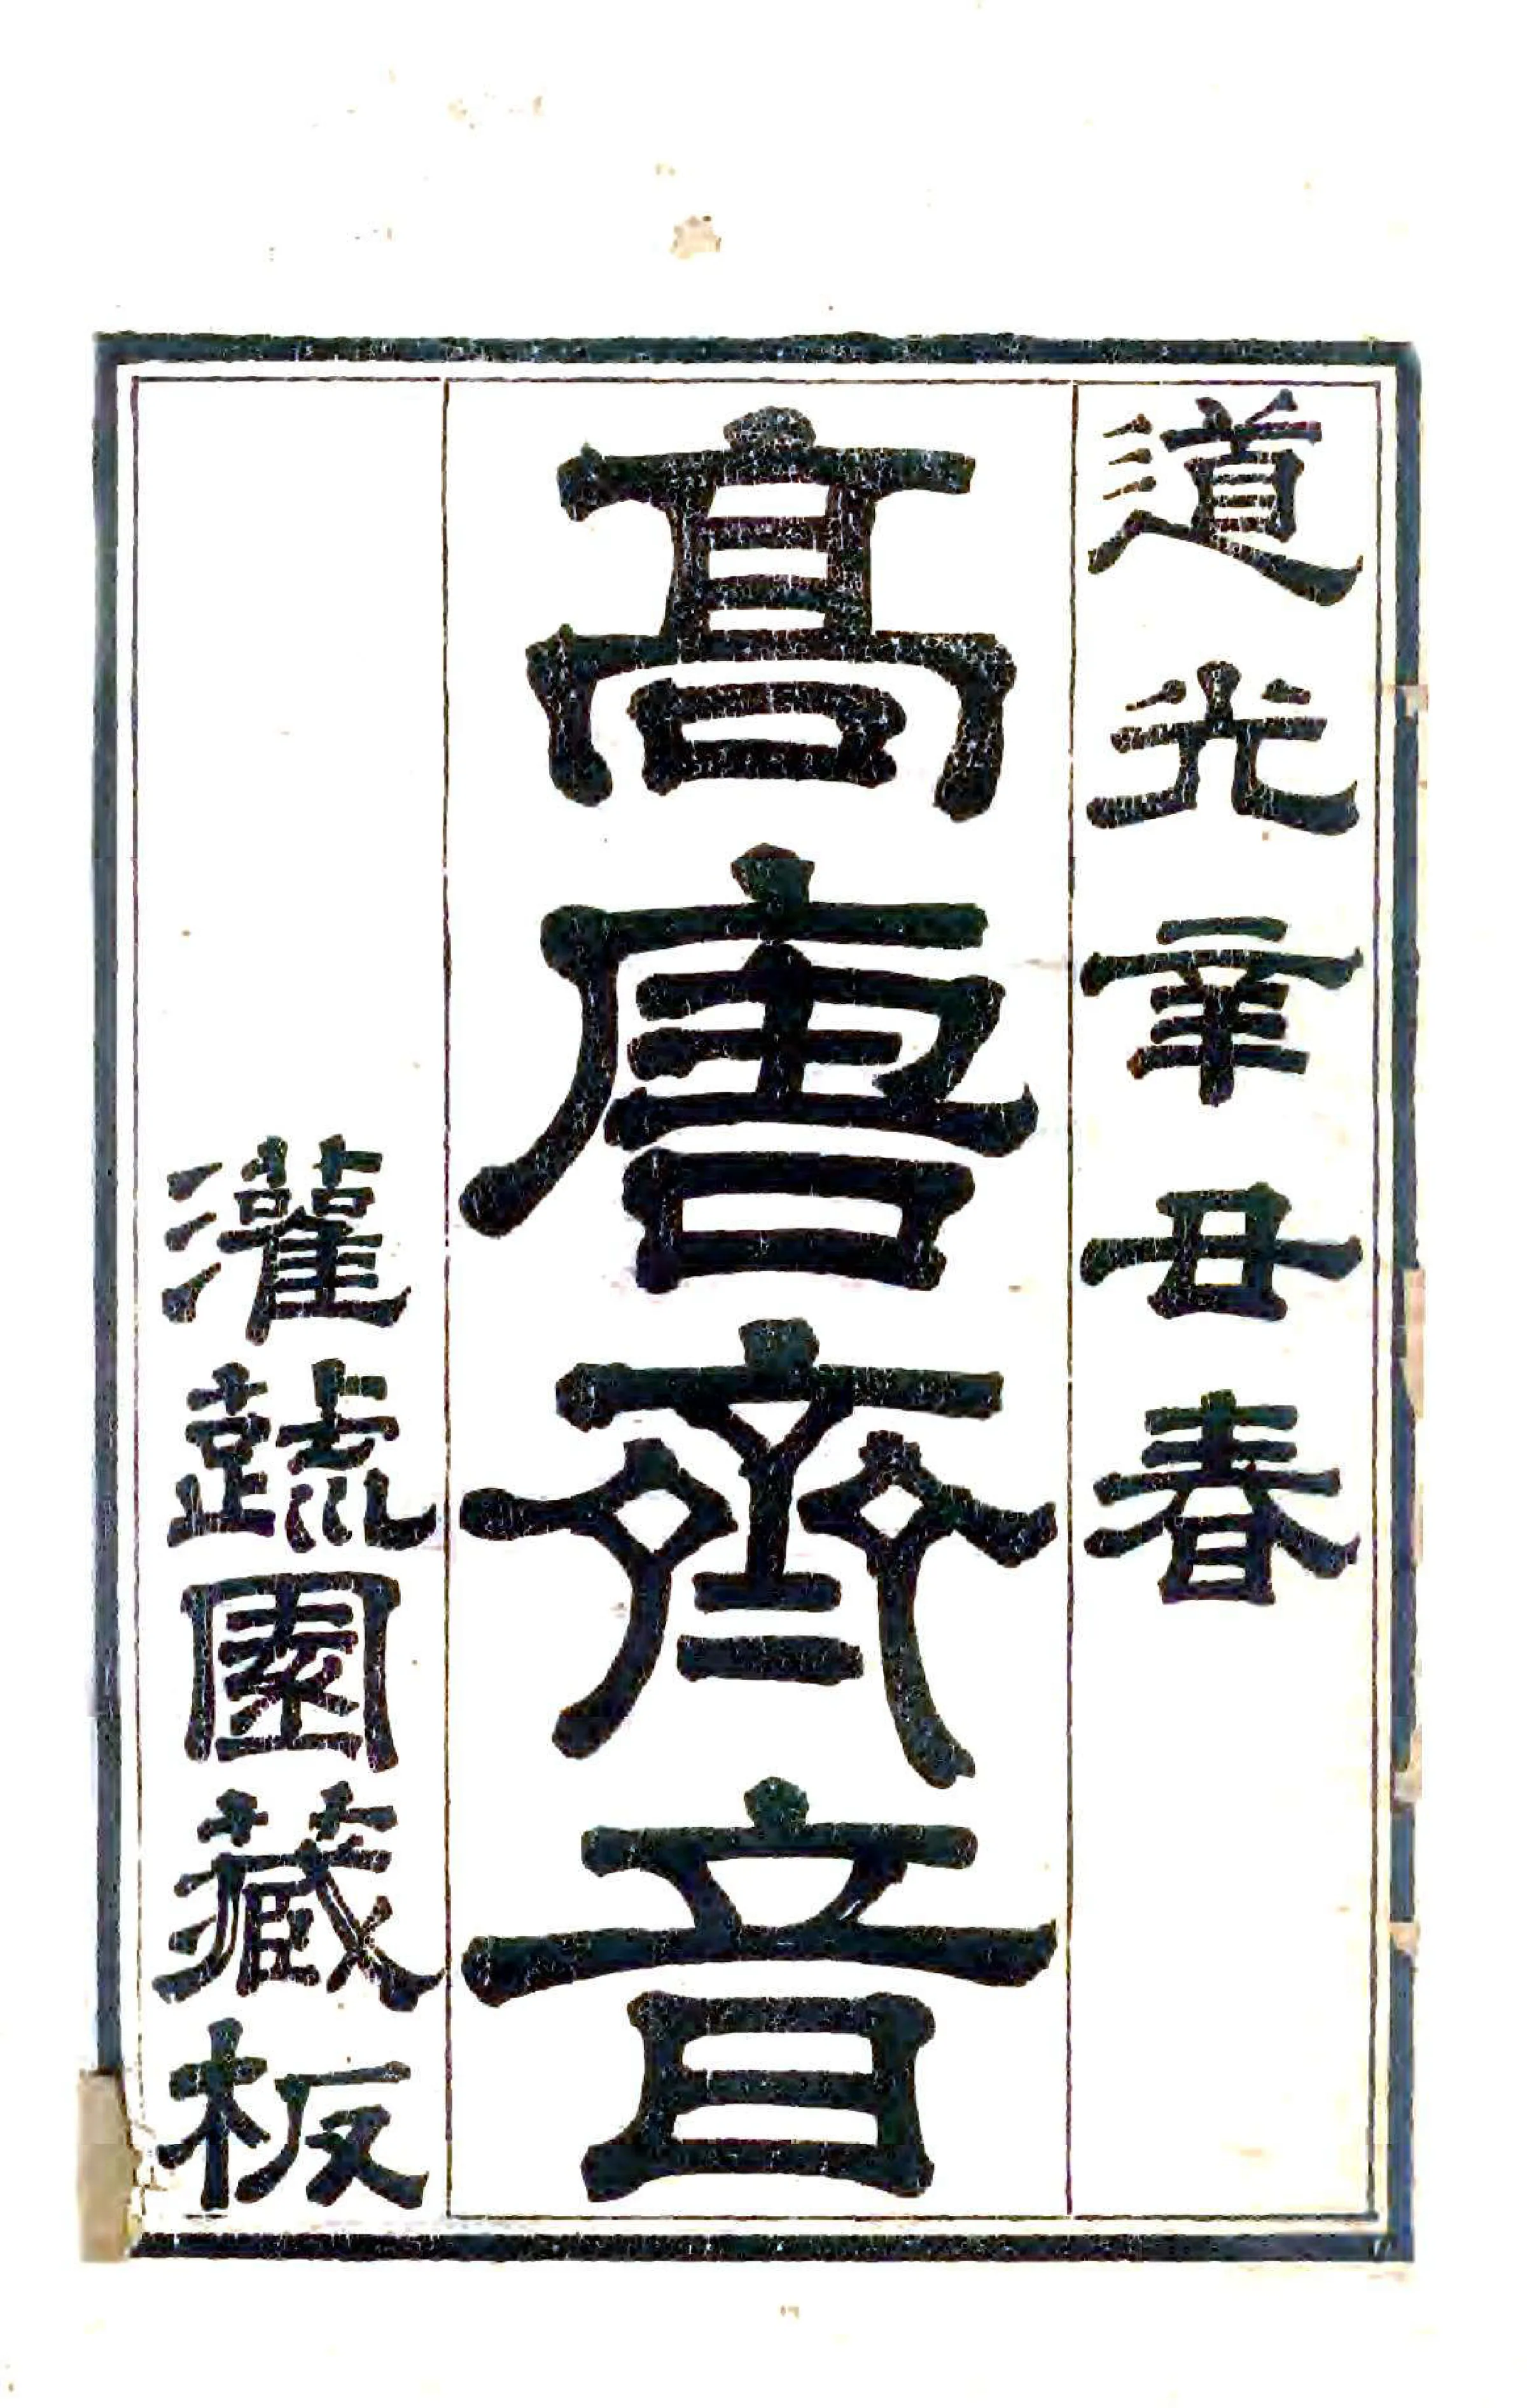 道光辛丑春
高唐齊音
灌蔬園藏板